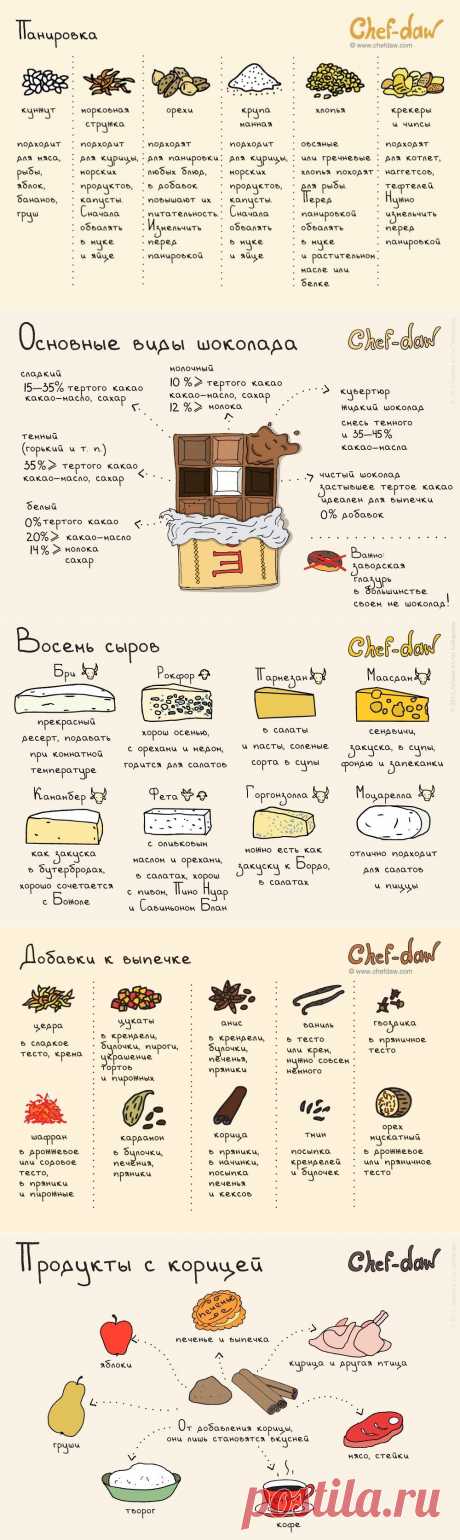 Панировка
Chef-daw
© www.chefdaw.com
кунжут
подходит
для мяса,
рыбы,
яблок,
бананов,
груш
морковная
стружка
подходит
для курицы,
морских
продуктов,
капусты.
Сначала
обвалять
в муке
и яйце
орехи
подходят
для панировки
любых блюд,
в добавок
повышают их
питательность.
Измельчить
перед
панировкой
крупа
манная
подходит
для курицы,
морских
продуктов,
капусты.
Сначала
обвалять
в муке
и яйце
хлопья
овсяные
или гречневые
хлопья походят
для рыбы.
Перед
панировкой
обвалять
в муке
и растительном
масле или
белке
крекеры
и чипсы
подходят
для котлет,
наггетсов,
тефтелей.
Нужно
измельчить
перед
панировкой
Основные виды шоколада
Chef-daw
сладкий
15—35% тертого какао
какао-масло, сахар
молочный
10 %⩾ тертого какао
какао-масло, сахар
12 %⩾ молока
кувертюр
жидкий шоколад
смесь темного
и 35—45%
какао-масла
темный
(горький и т. п.)
35%⩾ тертого какао
какао-масло, сахар
чистый шоколад
застывшее тертое какао
идеален для выпечки
0% добавок
белый
0% тертого какао
20%⩾ какао-масло
14%⩾ молока
сахар
Ш
Важно:
заводская
глазурь
в большинстве
своем не шоколад!
Восемь сыров
Chef-daw
Бри
прекрасный
десерт, подавать
при комнатной
температуре
Рокфор
хорош осенью,
с орехами и медом,
годится для салатов
Пармезан
в салаты
и пасты, соленые
сорта в супы
Маасдам
сендвичи,
закуска, в супы,
фондю и запеканки
Камамбер
как закуска
в бутербродах,
хорошо сочетается
с Божоле
Фета
с оливковым
маслом и орехами,
в салатах, хорош
с пивом, Пино Нуар
и Савиньоном Блан
Горгонзолла
можно есть как
закуску к Бордо,
в салатах
Моцарелла
отлично подходит
для салатов
и пиццы
Добавки к выпечке
Chef-daw
© www.chefdaw.com
цедра
в сладкое
тесто, крема
цукаты
в крендели,
булочки, пироги,
украшение
тортов
и пирожных
анис
в крендели,
булочки,
печенья,
пряники
ваниль
в тесто
или крем,
нужно совсем
немного
гвоздика
в пряничное
тесто
шафран
в дрожжевое
или содовое
тесто,
в пряники
и пирожные
кардамон
в булочки,
печения,
пряники
корица
в пряники,
в начинки,
посыпка
печенья
и кексов
тмин
посыпка
кренделей
и булочек
орех
мускатный
в дрожжевое
или пряничное
тесто
Продукты с корицей
Chef-daw
печенье
печенье и выпечка
яблоки
курица и другая птица
груши
От добавления корицы,
они лишь становятся вкусней
мясо, стейки
творог
кофе
postila.ru